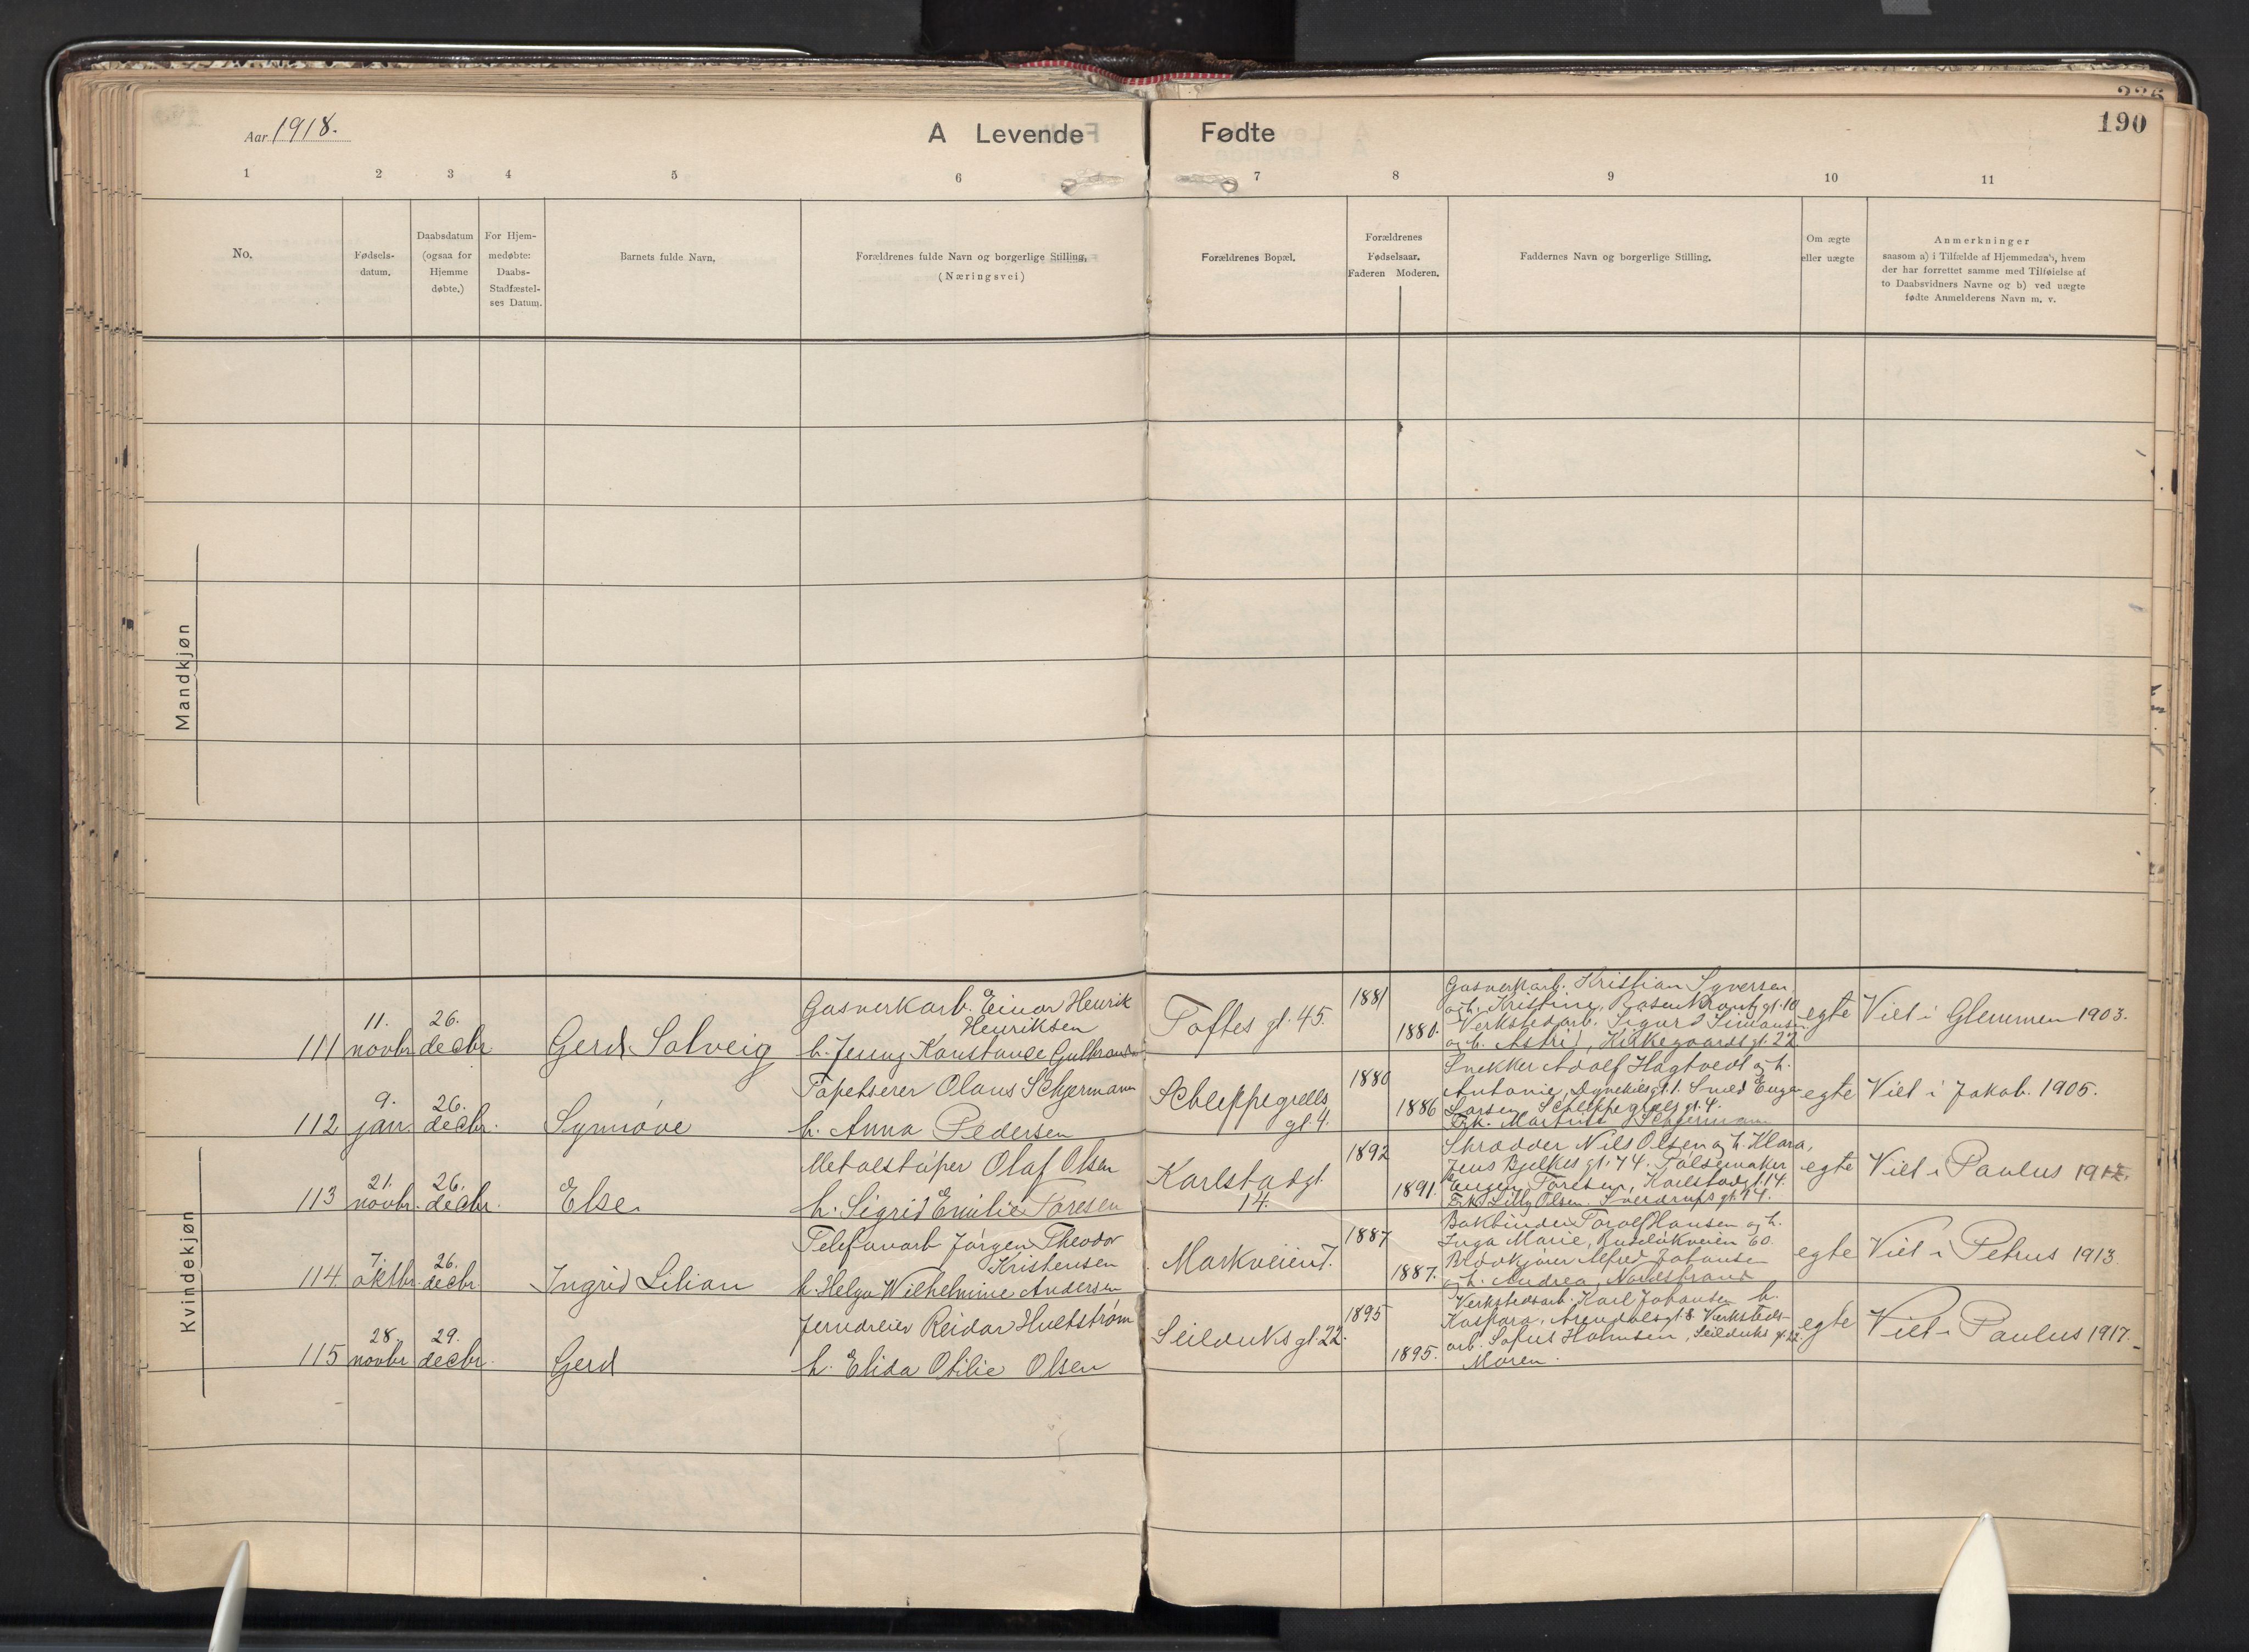 Aar 1918.
A Levende Fødte
190
1 2 3 4 5 6 7 8 9 10 11
No.
Fødsels-
datum.
Daabsdatum
(ogsaa for
Hjemme
døbte.)
For Hjem-
medøbte:
Daabs-
Stadfæstel-
ses Datum.
Barnets fulde Navn.
Forældrenes fulde Navn og borgerlige Stilling.
(Næringsvei)
Forældrenes Bopæl.
Forældrenes
Fødselsaar.
Faderen Moderen.
Faddernes Navn og borgerlige Stilling.
Om ægte
eller uægte
Anmerkninger
saasom a) i Tilfælde af Hjemmedaab, hvem
der har forrettet samme med Tilføielse af
to Daabsvidners Navne og b) ved uægte
fødte Anmelderens Navn m. v.
Mandkjøn
Kvindekjøn
111
11.
novbr.
26.
decbr.
Gerd Solveig
Gasverkarb. Einar Henrik
Henriksen
h. Jenny Konstanse
Toftes gt. 45.
1881
1880.
Gasverkarb. Kristian Syversen
og h. Kristine, Rosenkrantzgt. 10
Verkstedarb. Sigurd Simonsen
og h. Astrid, Kirkegaardsgt. 22.
egte
Viet i Glemmen 1903.
112
9.
jan.
26.
decbr.
Synnöve
Tapetserer Olaus Schjermann
h. Anna Pedersen
Schleppegrells
gt. 4.
1880
1886
Snekker Adolf Hagtvedt og h.
Antonie, gt. 1. Smed
Larsen, Schleppegrels gt. 4.
Frk. Schjermann
egte
Viet i Jakob. 1905.
113
21.
novbr.
26.
decbr.
Else
Metalstöper Olaf Olsen
h. Sigrid Emilie Toresen
Karlstadgt.
14.
1892
1891.
Skrædder Nils Olsen og h. Klara,
Jens Bjelkes gt. 74. Pölsemaker
Eugen Toresen, Karlstadgt. 14.
Frk. Lilly Olsen Sverdrups gt. 14.
egte
Viet i Paulus
114
7.
oktbr.
26.
decbr.
Ingrid Lilian
Telefonarb Jörgen Theodor
Kristensen
h. Helga Wilhelmine Andersen
Markveien 7.
1887
1887.
Bokbinder Torolf Hansen og h.
Inga Marie, 60.
Brödkjörer Alfred Johansen
og h. Andrea, Nordstrand
egte
Viet i Petrus 1913.
115
28.
novbr.
29.
decbr.
Gerd
Jerndreier Reidar Hultstrøm
h. Elida Otilie Olsen
Seilduksgt. 22.
1895
1895.
Verkstedsarb. Karl Johansen h.
Kaspara, Arendalsgt. 8 Verksteds-
arb. Sofus Holmsen, Seilduks gt. 22
Maren.
egte
Viet i Paulus 1917.